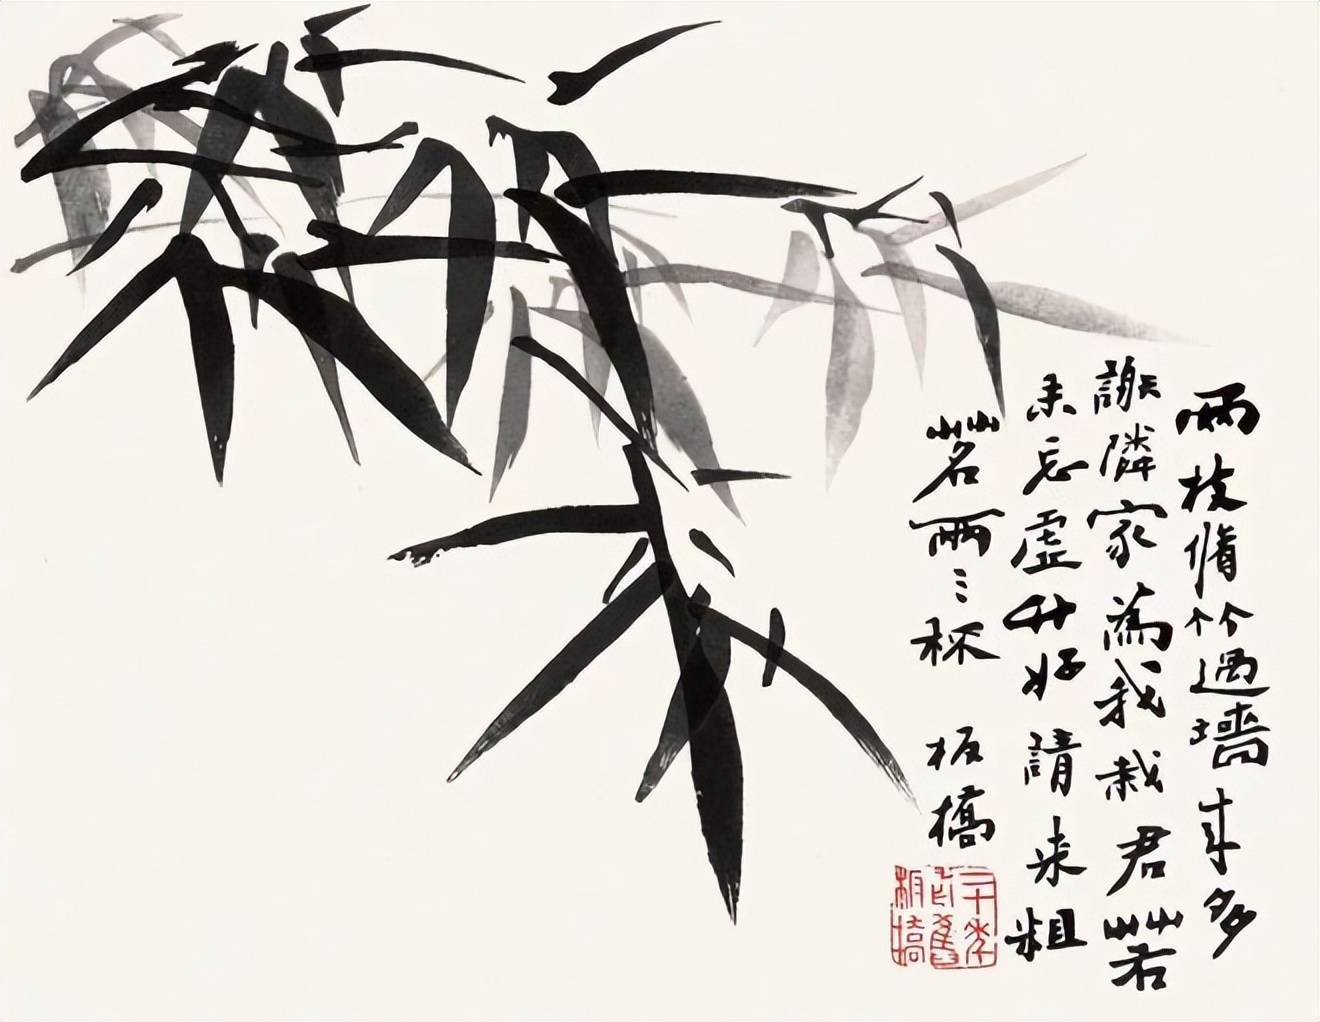 兩枝脩竹過墻來多
謝隣家為我栽君若
未忘虛竹好請來粗
茗兩三杯 板橋
二十年
前舊
板橋